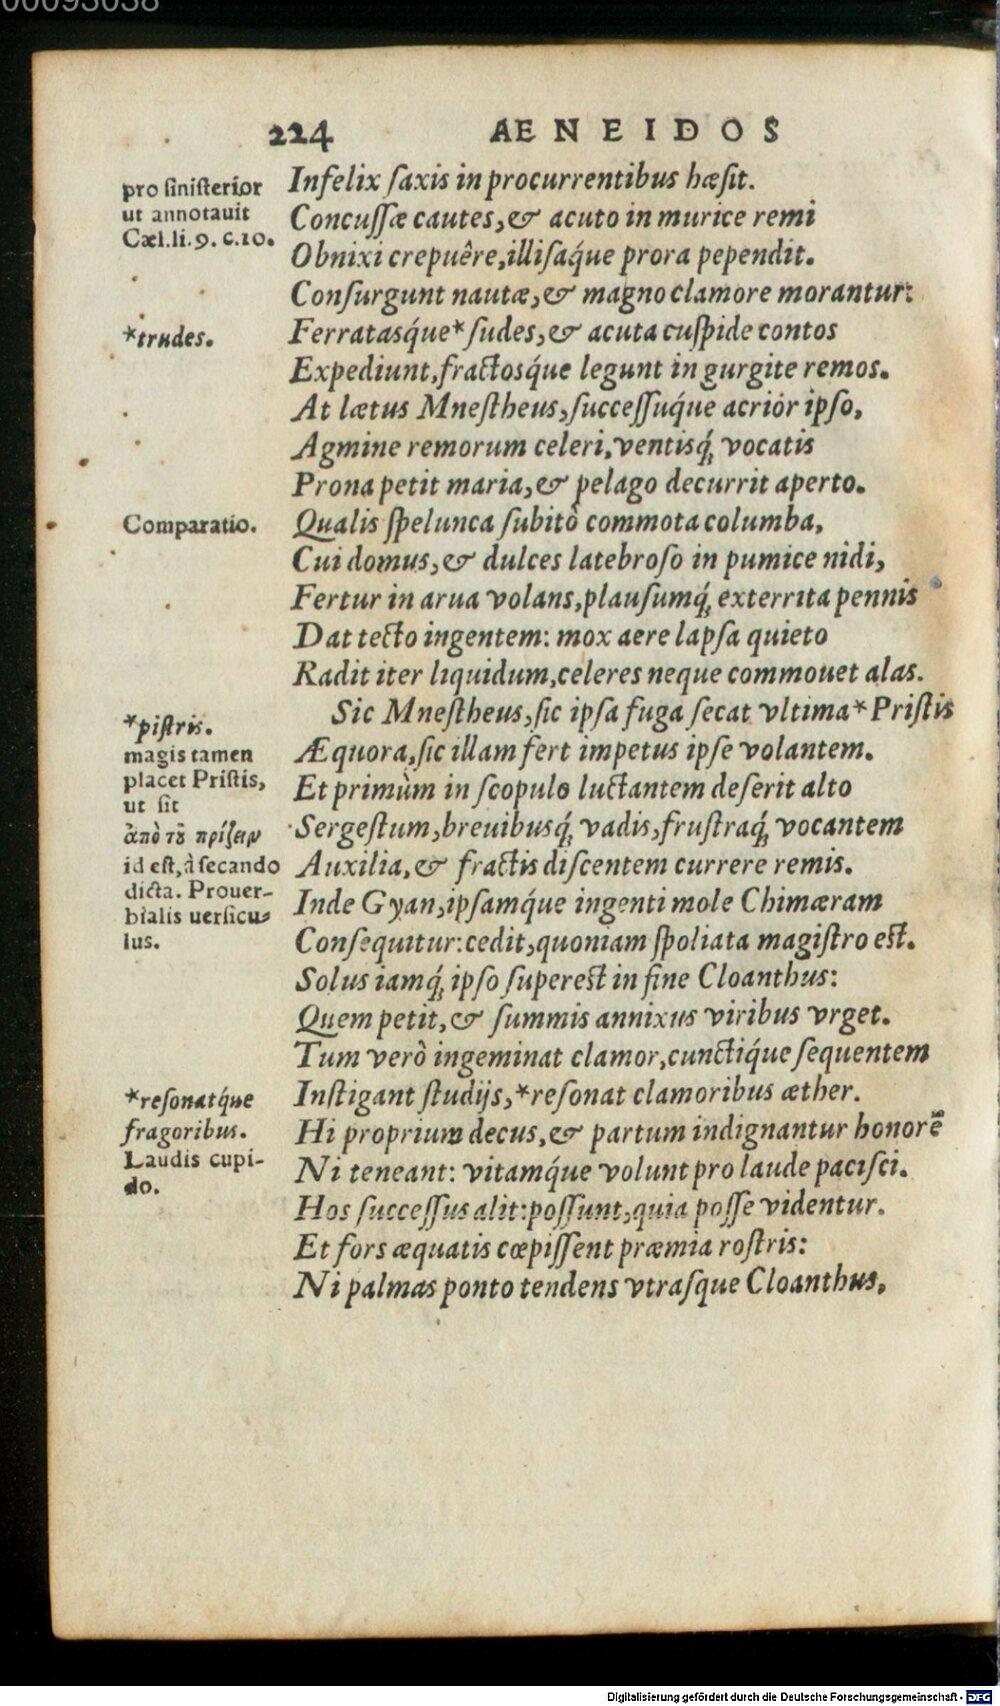 00093038
224 AENEIDOS
pro ſiniſterior
ut annotauit
Cæl.li.9.c.10.
Infelix ſaxis in procurrentibus hæſit.
Concuſſæ cautes, & acuto in murice remi
Obnixi crepuêre, illiſaq́ue prora pependit.
Conſurgunt nautæ, & magno clamore morantur:
*trudes.
Ferratasq́ue* ſudes, & acuta cuſpide contos
Expediunt, fractosq́ue legunt in gurgite remos.
At lætus Mneſtheus, ſucceſſuq́ue acrior ipſo,
Agmine remorum celeri, ventisq́; vocatis
Prona petit maria, & pelago decurrit aperto.
Comparatio.
Qualis ſpelunca ſubitò commota columba,
Cui domus, & dulces latebroſo in pumice nidi,
Fertur in arua volans, plauſumq́; exterrita pennis
Dat tecto ingentem: mox aere lapſa quieto
Radit iter liquidum, celeres neque commouet alas.
*piſtris.
magis tamen
placet Priſtis,
ut ſit
ἀπὸ τοῦ πρίζειν
id eſt, à ſecando
dicta. Prouer-
bialis uerſicu-
lus.
Sic Mneſtheus, ſic ipſa fuga ſecat vltima* Priſtis
Æquora, ſic illam fert impetus ipſe volantem.
Et primùm in ſcopulo luctantem deſerit alto
Sergeſtum, breuibusq́; vadis, fruſtraq́; vocantem
Auxilia, & fractis diſcentem currere remis.
Inde Gyan, ipſamq́ue ingenti mole Chimæram
Conſequitur: cedit, quoniam ſpoliata magiſtro eſt.
Solus iamq́; ipſo ſupereſt in fine Cloanthus:
Quem petit, & ſummis annixus viribus vrget.
Tum verò ingeminat clamor, cunctiq́ue ſequentem
*reſonatq́ue
fragoribus.
Laudis cupi-
do.
Inſtigant ſtudijs, *reſonat clamoribus æther.
Hi proprium decus, & partum indignantur honorē
Ni teneant: vitamq́ue volunt pro laude paciſci.
Hos ſucceſſus alit: poſſunt, quia poſſe videntur.
Et fors æquatis cœpiſſent præmia roſtris:
Ni palmas ponto tendens vtraſque Cloanthus,
Digitalisierung gefördert durch die Deutsche Forschungsgemeinschaft - DFG